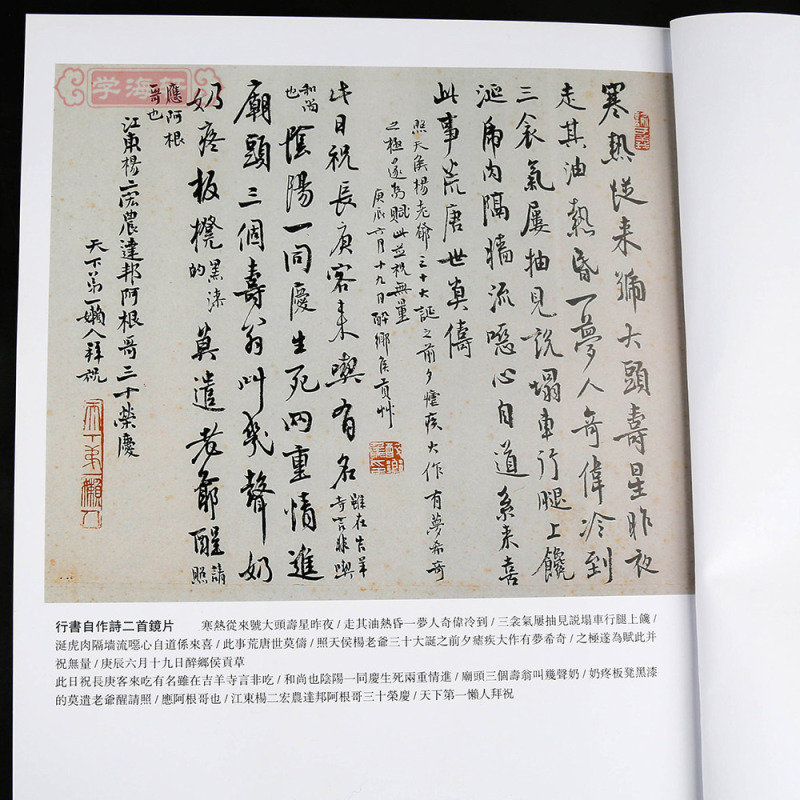 学海轩
寒熱從來號大頭壽星昨夜
走其油熱昏一夢人奇偉冷到
三衾氣屢抽見説塌車行腿上饞
涎虎肉隔墻流噁心自道係来喜
此事荒唐世莫儔
照天侯楊老爺三十大誕之前夕瘧疾大作有夢希奇
之極遂為賦此並祝無量
庚辰六月十九日醉鄉侯貢草
此日祝長庚客来喫有名雖在吉羊
寺言非喫
和尚
也陰陽一同慶生死兩重情進
廟頭三個壽翁叫幾聲奶
奶疼板櫈的黑漆莫遣老爺醒請
照
應阿根
哥也
江東楊二宏農達邦阿根哥三十榮慶
天下第一懶人拜祝
天下第一懶人
行書自作詩二首鏡片 寒熱從來號大頭壽星昨夜 / 走其油熱昏一夢人奇偉冷到 / 三衾氣屢抽見説塌車行腿上饞 /
涎虎肉隔墻流噁心自道係來喜 / 此事荒唐世莫儔 / 照天侯楊老爺三十大誕之前夕瘧疾大作有夢希奇 / 之極遂為賦此并
祝無量 / 庚辰六月十九日醉鄉侯貢草
此日祝長庚客來吃有名雖在吉羊寺言非吃 / 和尚也陰陽一同慶生死兩重情進 / 廟頭三個壽翁叫幾聲奶 / 奶疼板凳黑漆
的莫遣老爺醒請照 / 應阿根哥也 / 江東楊二宏農達邦阿根哥三十榮慶 / 天下第一懶人拜祝